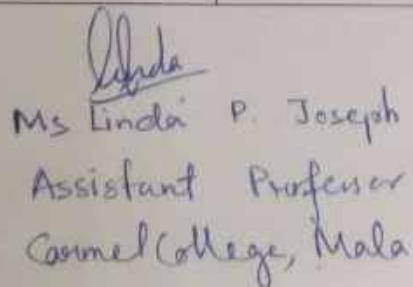 Linda
Ms Linda P. Joseph
Assistant Professor
Carmel College, Mala